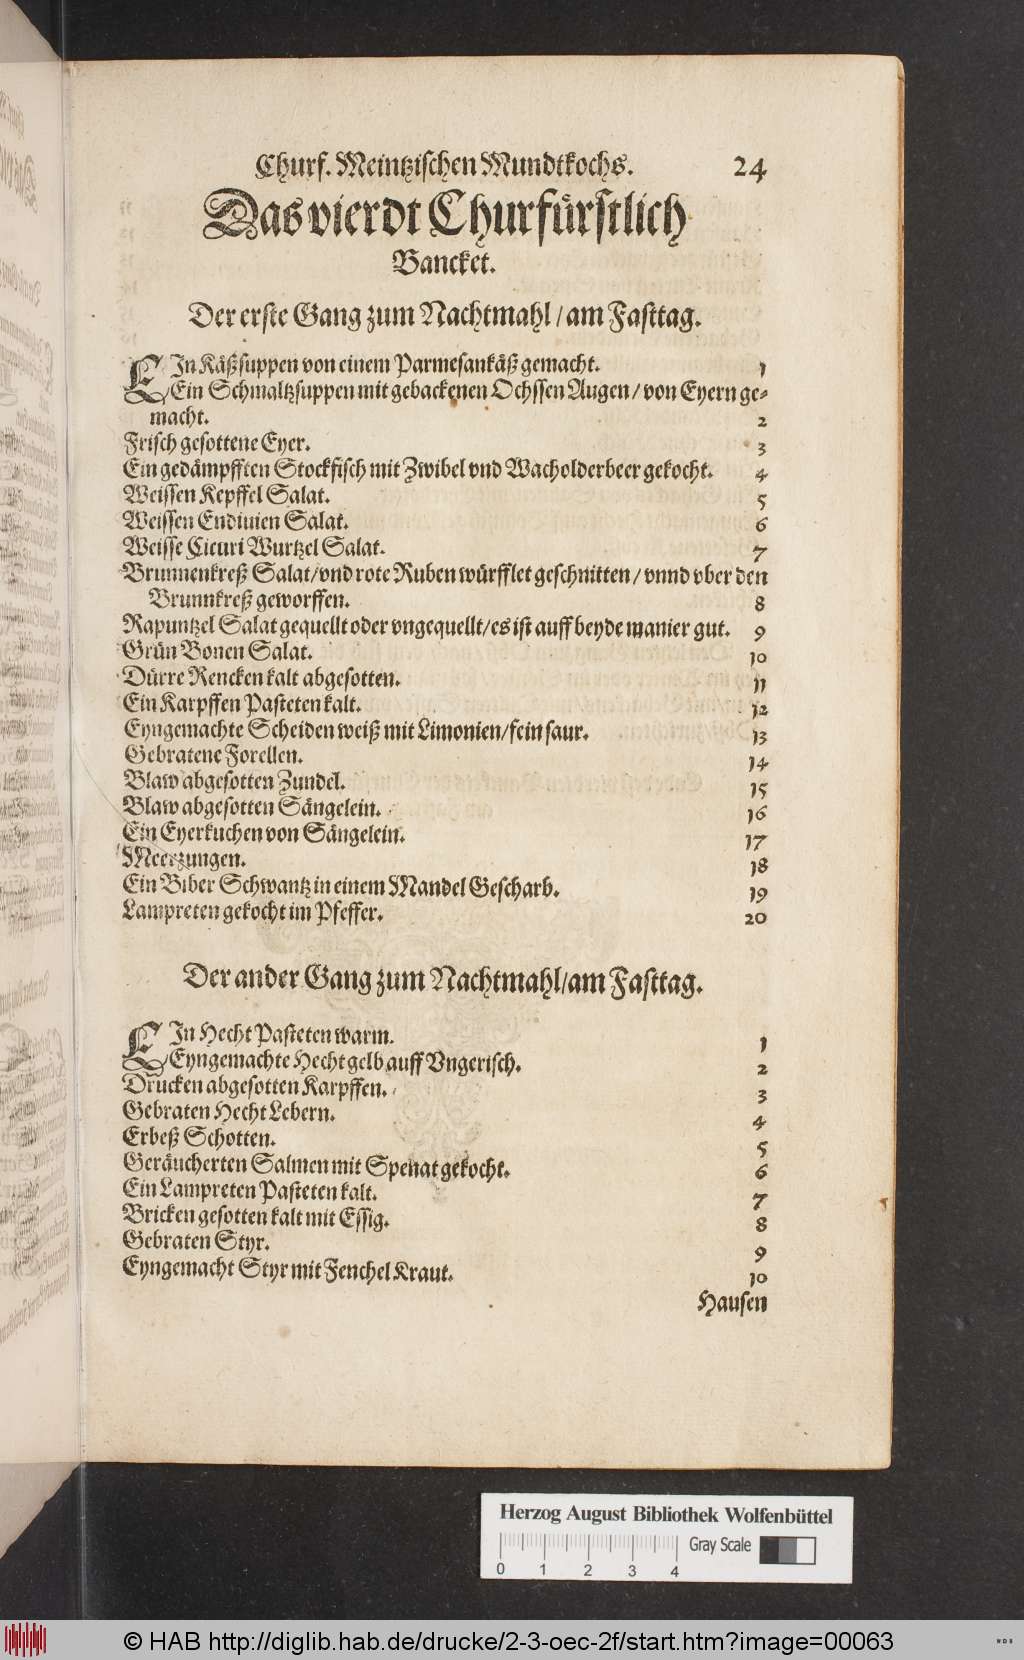 Churf. Meintzischen Mundtkochs. 24
Das vierdt Churfürstlich
Bancket.
Der erste Gang zum Nachtmahl / am Fasttag.
EIn Käßsuppen von einem Parmesankäß gemacht. 1
Ein Schmaltzsuppen mit gebackenen Ochssen Augen / von Eyern ge-
macht. 2
Frisch gesottene Eyer. 3
Ein gedämpfften Stockfisch mit Zwibel vnd Wacholderbeer gekocht. 4
Weissen Kepffel Salat. 5
Weissen Endiuien Salat. 6
Weisse Cicuri Wurtzel Salat. 7
Brunnenkreß Salat / vnd rote Ruben würfflet geschnitten / vnnd vber den
Brunnkreß geworffen. 8
Rapuntzel Salat gequellt oder vngequellt / es ist auff beyde manier gut. 9
Grün Bonen Salat. 10
Dürre Rencken kalt abgesotten. 11
Ein Karpffen Pasteten kalt. 12
Eyngemachte Scheiden weiß mit Limonien / fein saur. 13
Gebratene Forellen. 14
Blaw abgesotten Zundel. 15
Blaw abgesotten Sängelein. 16
Ein Eyerkuchen von Sängelein. 17
Meerzungen. 18
Ein Biber Schwantz in einem Mandel Gescharb. 19
Lampreten gekocht im Pfeffer. 20
Der ander Gang zum Nachtmahl / am Fasttag.
EIn Hecht Pasteten warm. 1
Eyngemachte Hecht gelb auff Vngerisch. 2
Drucken abgesotten Karpffen. 3
Gebraten Hecht Lebern. 4
Erbeß Schotten. 5
Geräucherten Salmen mit Spenat gekocht. 6
Ein Lampreten Pasteten kalt. 7
Bricken gesotten kalt mit Essig. 8
Gebraten Styr. 9
Eyngemacht Styr mit Fenchel Kraut. 10
Hausen
Herzog August Bibliothek Wolfenbüttel
Gray Scale
0 1 2 3 4
© HAB http://diglib.hab.de/drucke/2-3-oec-2f/start.htm?image=00063